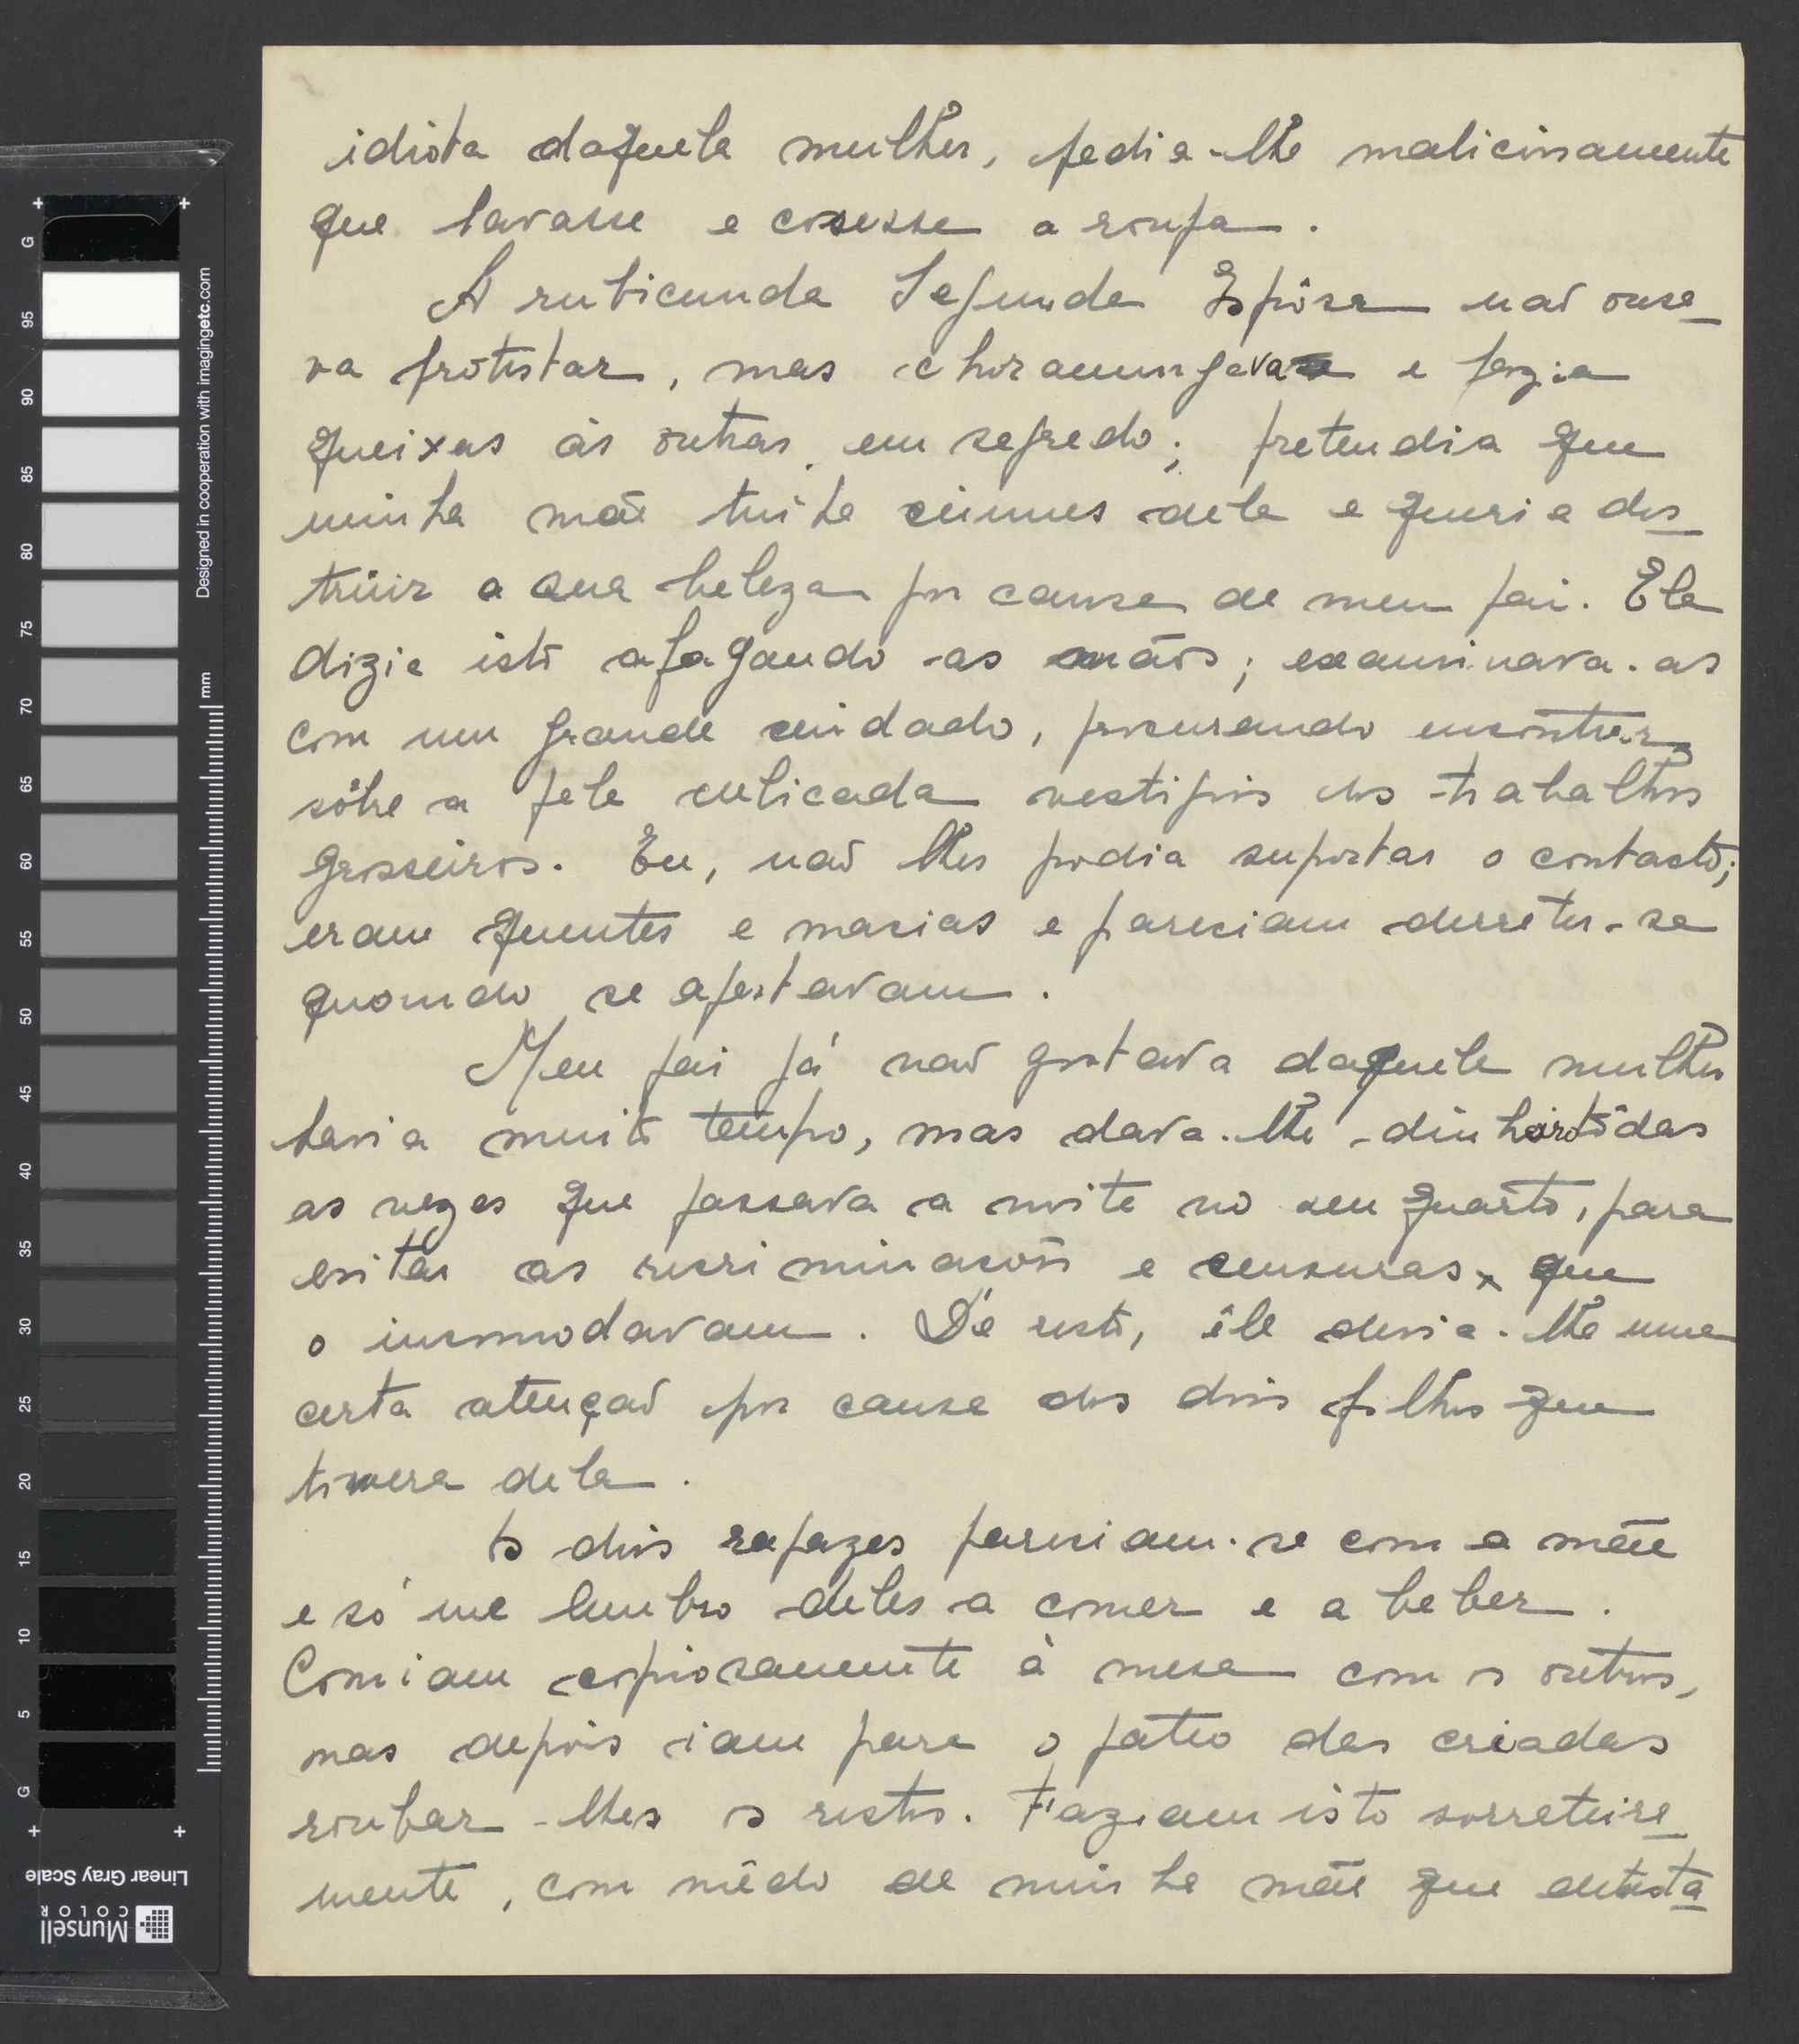 idiota daquela mulher, pedia-lhe maliciosamente
que lavasse e cosesse a roupa.
A rubicunda Segunda Espôsa não ousa-
va protestar, mas choramingava e fazia
queixas às outras, em segredo; pretendia que
minha mãe tinha ciumes dela e queria des-
truir a sua beleza por causa de meu pai. Ela
dizia isto afagando as mãos; examinava-as
com um grande cuidado, procurando encontrar
sôbre a pele delicada vestigios dos trabalhos
grosseiros. Eu, não lhes podia suportar o contacto;
eram quentes e macias e pareciam derreter-se
quando se apertavam.
Meu pai já não gostava daquela mulher
havia muito tempo, mas dava-lhe dinheiro tôdas
as vezes que passava a noite no seu quarto, para
evitar as recriminacões e censuras que
o incomodavam. De resto, êle devia-lhe uma
certa atenção por causa dos dois filhos que
tivera dela.
Os dois rapazes pareciam-se com a mãe
e só me lembro deles a comer e a beber.
Comiam copiosamente à mesa com os outros,
mas depois iam para o páteo das criadas
roubar-lhes os restos. Faziam isto sorrateira-
mente, com mêdo de minha mãe que detesta-
Designed in cooperation with imagingetc.com
mm
G
95
90
85
80
75
70
65
60
55
50
45
40
35
30
25
20
15
10
5
G
Linear Gray Scale
Munsell
COLOR